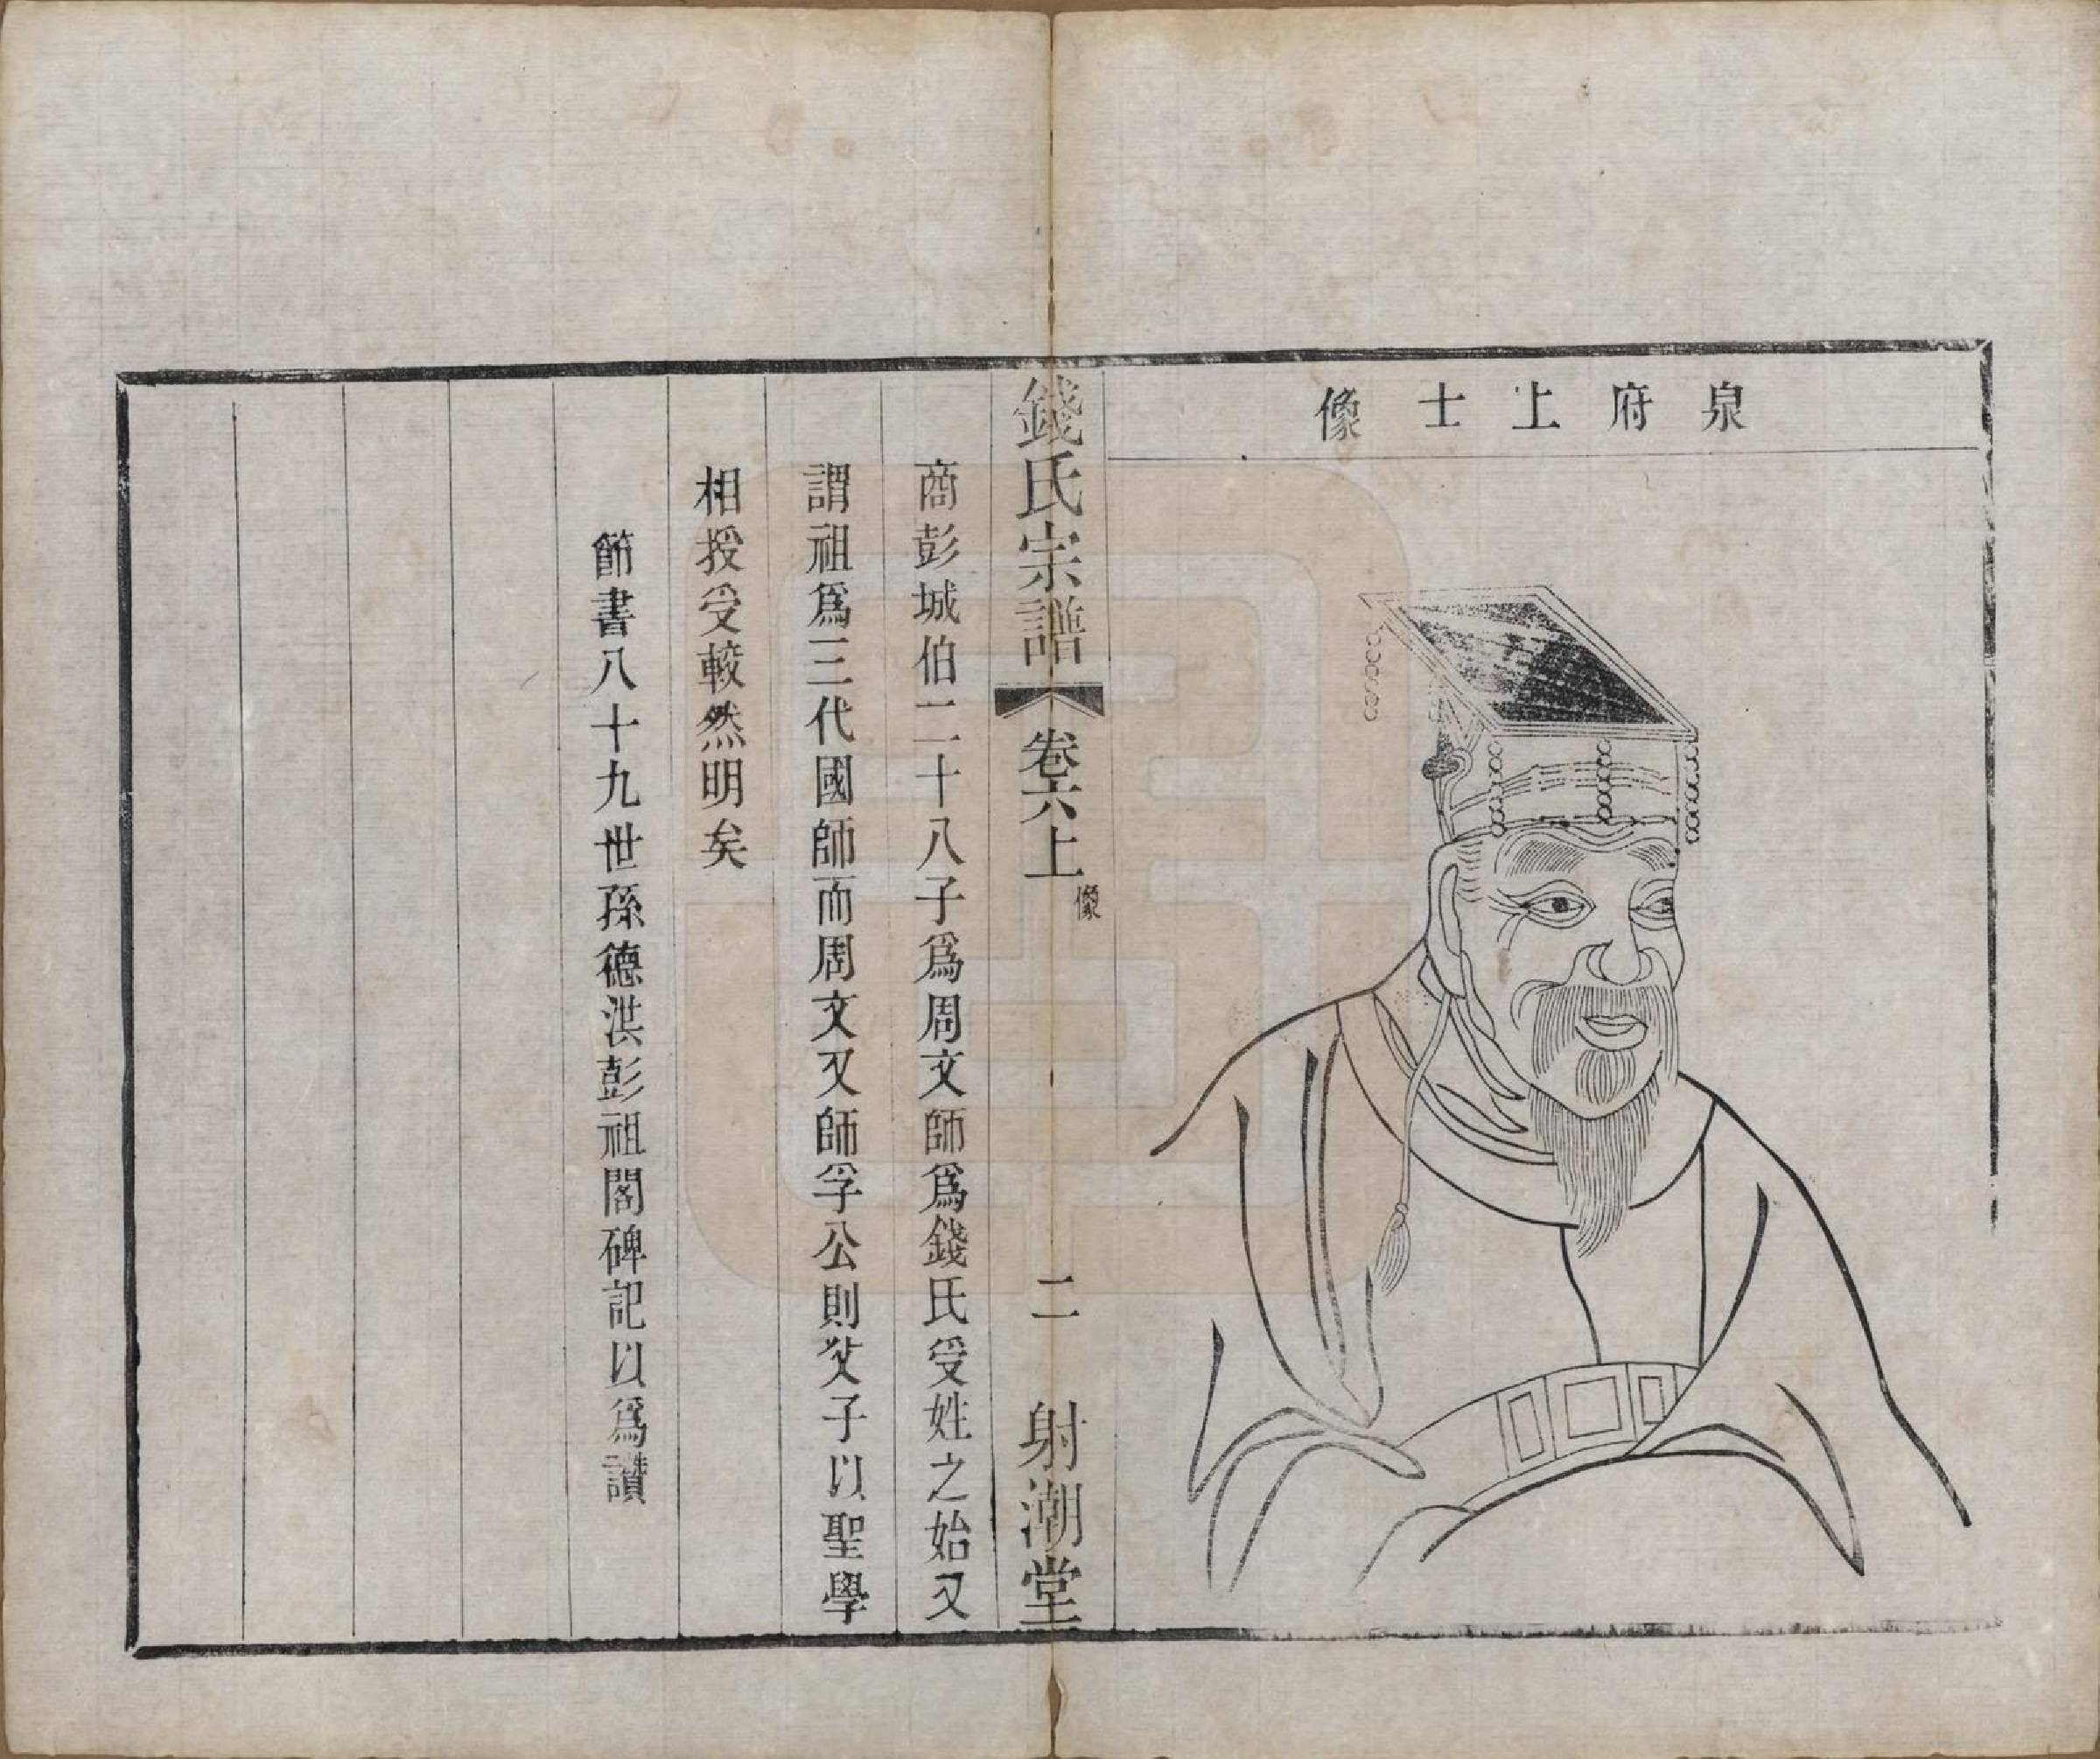 泉府上士像
錢氏宗譜
卷六上
像
二
射潮堂
商彭城伯二十八子爲周文師爲錢氏受姓之始又
謂祖爲三代國師而周文又師孚公則父子以聖學
相授受較然明矣
節書八十九世孫德洪彭祖閣碑記以爲讚